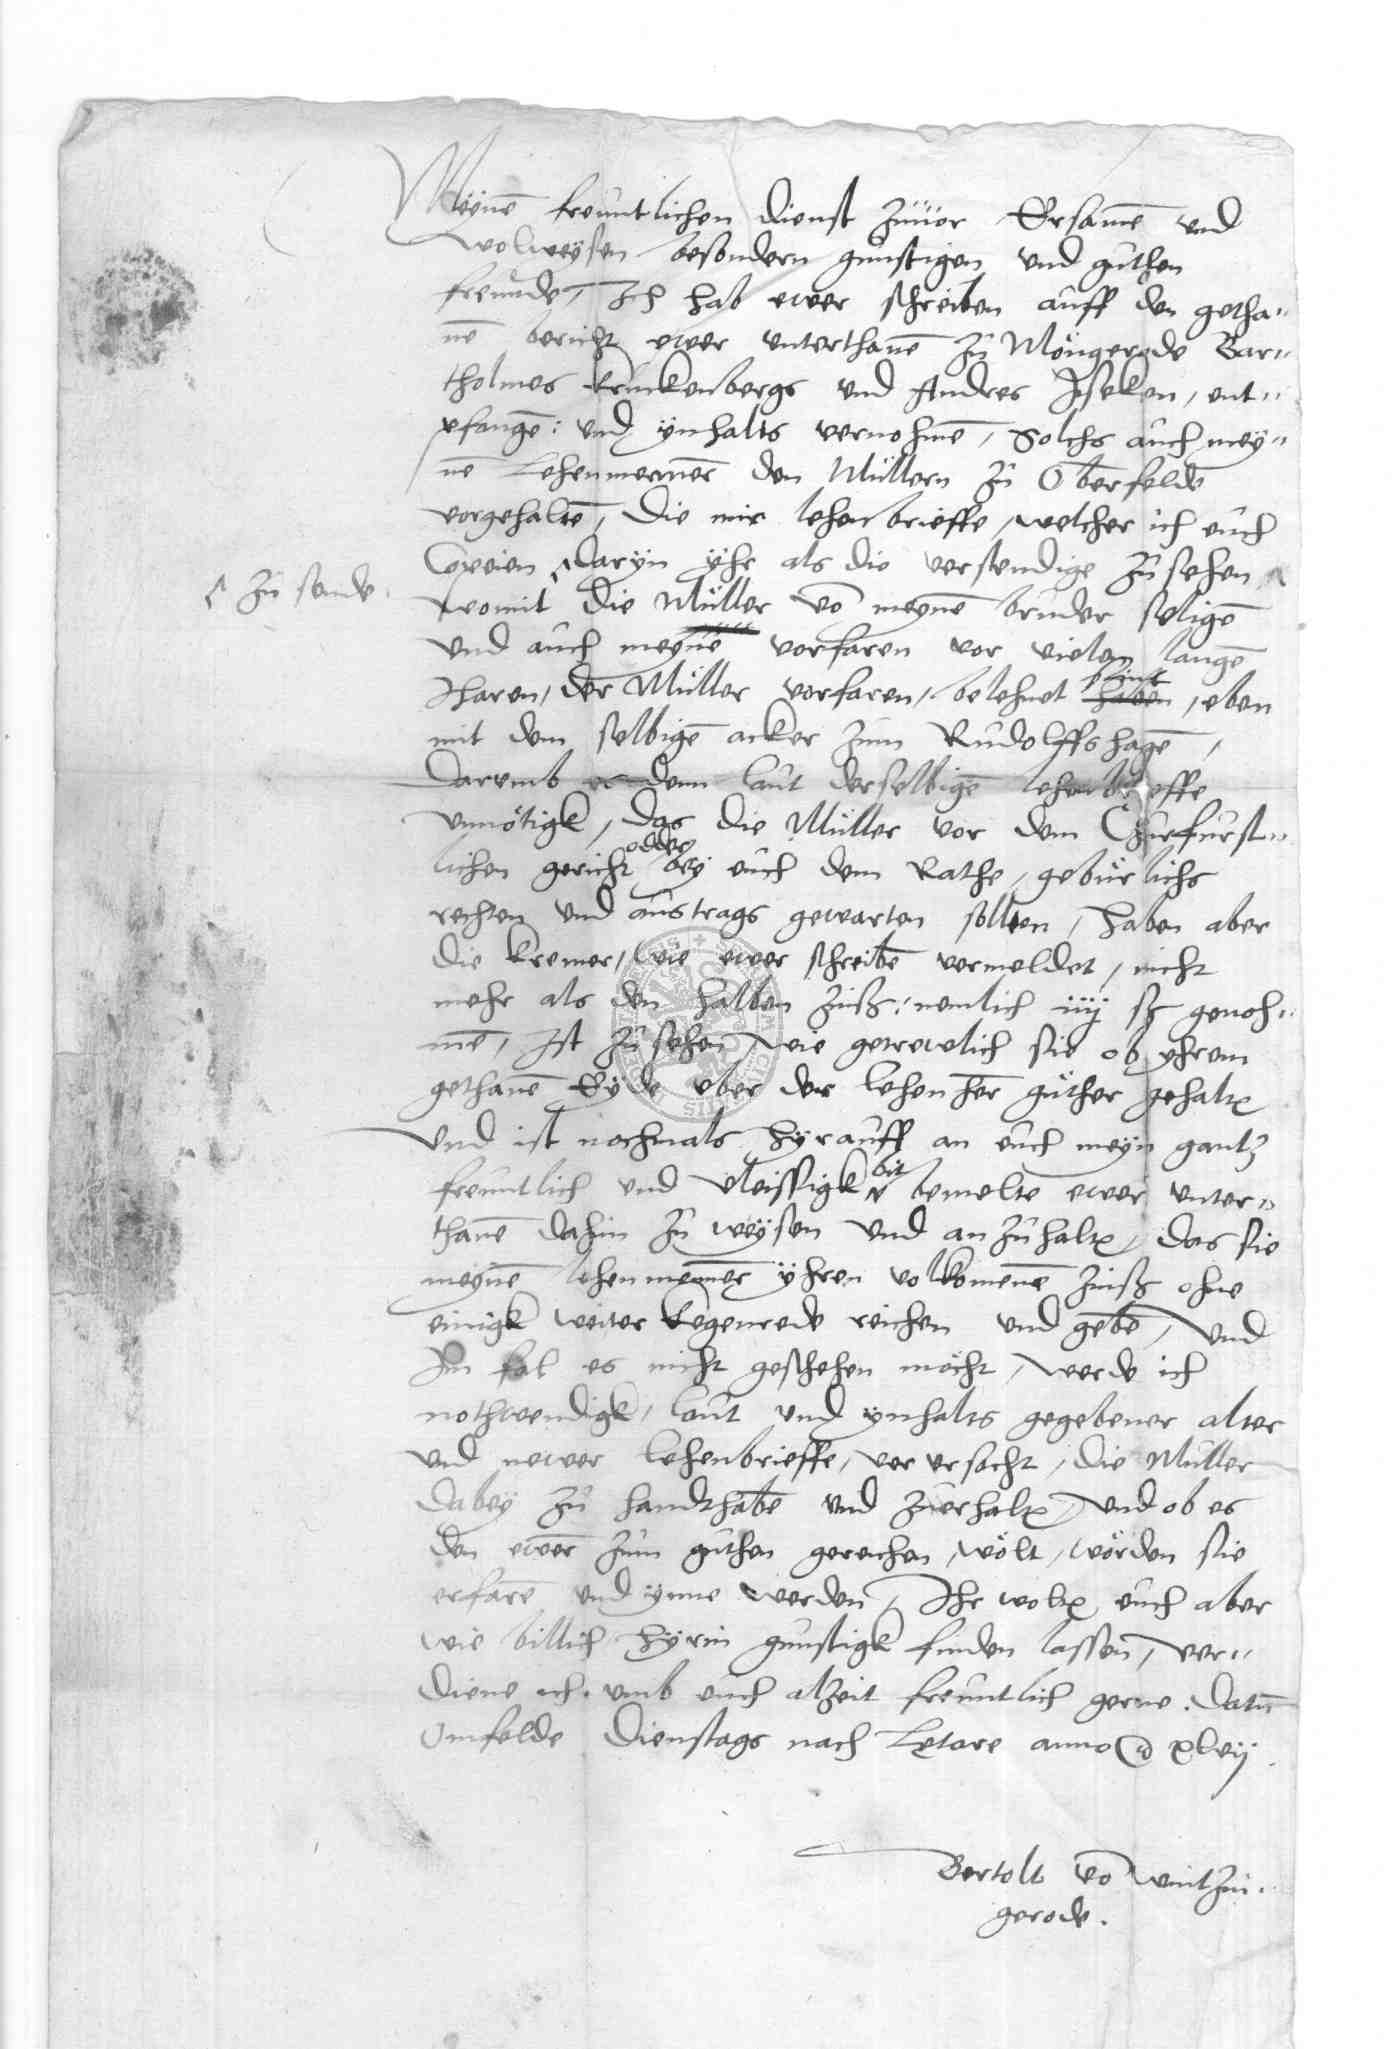 Meynē freuntlichen dienst zuuor Ersamē und
wolweysen besondern gunstigen und guthen
freunde, Ich hab ewer schreiben auff den getha„
nē bericht ewer unterthanē zu Möngerode Bar„
tholmes Krunckenbergs und Andres Iseken, ent„
pfangē: und ynhalts vernohmē, Solchs auch mey„
nē Lehenmennēr den Müllern zu Oberfelde
vorgehaltē, die mir lehenbrieffe, welcher ich euch
Copeien daryn yhr als die verstendige zu sehen
zu sende
womit die Müller vō meynē bruder seligē
und auch meynē vorfaren vor vielen langē
Iharen, der Müller vorfaren, belehnet haben, eben
seint
mit dem selbigē acker zum Rudolffshagē,
darumb denn laut derselbigē lehenbrieffe
unnötigk, das die Müller vor dem Churfurst„
lichen gericht odder bey euch dem Rathe, gebürlichs
rechten und austrags gewarten sollten, haben aber
die kremer, wie ewer schreibē vermeldet, nicht
mehr als den halben zinß: nemlich iiij ß genoh„
mē, Ist zu sehen, wie getrewlich sie ob yhrem
gethanē Eyde uber der lehenhēr güther gehaltē
und ist nochmals hyrauff an euch meyn gantz
freuntlich und vleissigk bit bemeltē ewer unter„
thanē dahin zu weysen und anzuhaltē, das sie
meynē lehenmennēr yhren volkomenē zinß ohne
einigk weiter kegenrede reichen und gebē, und
Im fal es nicht geschehen möcht, werde ich
nothwendigk, laut und ynhalts gegebener alter
und newer lehenbrieffe, verursacht, die Müller
dabey zu handthabē und zuerhaltē, und ob es
den ewēr zum guthen gereichen wölt, wörden sie
erfarē und ynne werden, Ihr woltē euch aber
wie billich hyrin gunstigk finden lassen, ver„
diene ich umb euch alzeit freuntlich gerne. Datū
Omfelde Dienstags nach Letare anno xlvij
Bertolt vō wintzin„
gerode.